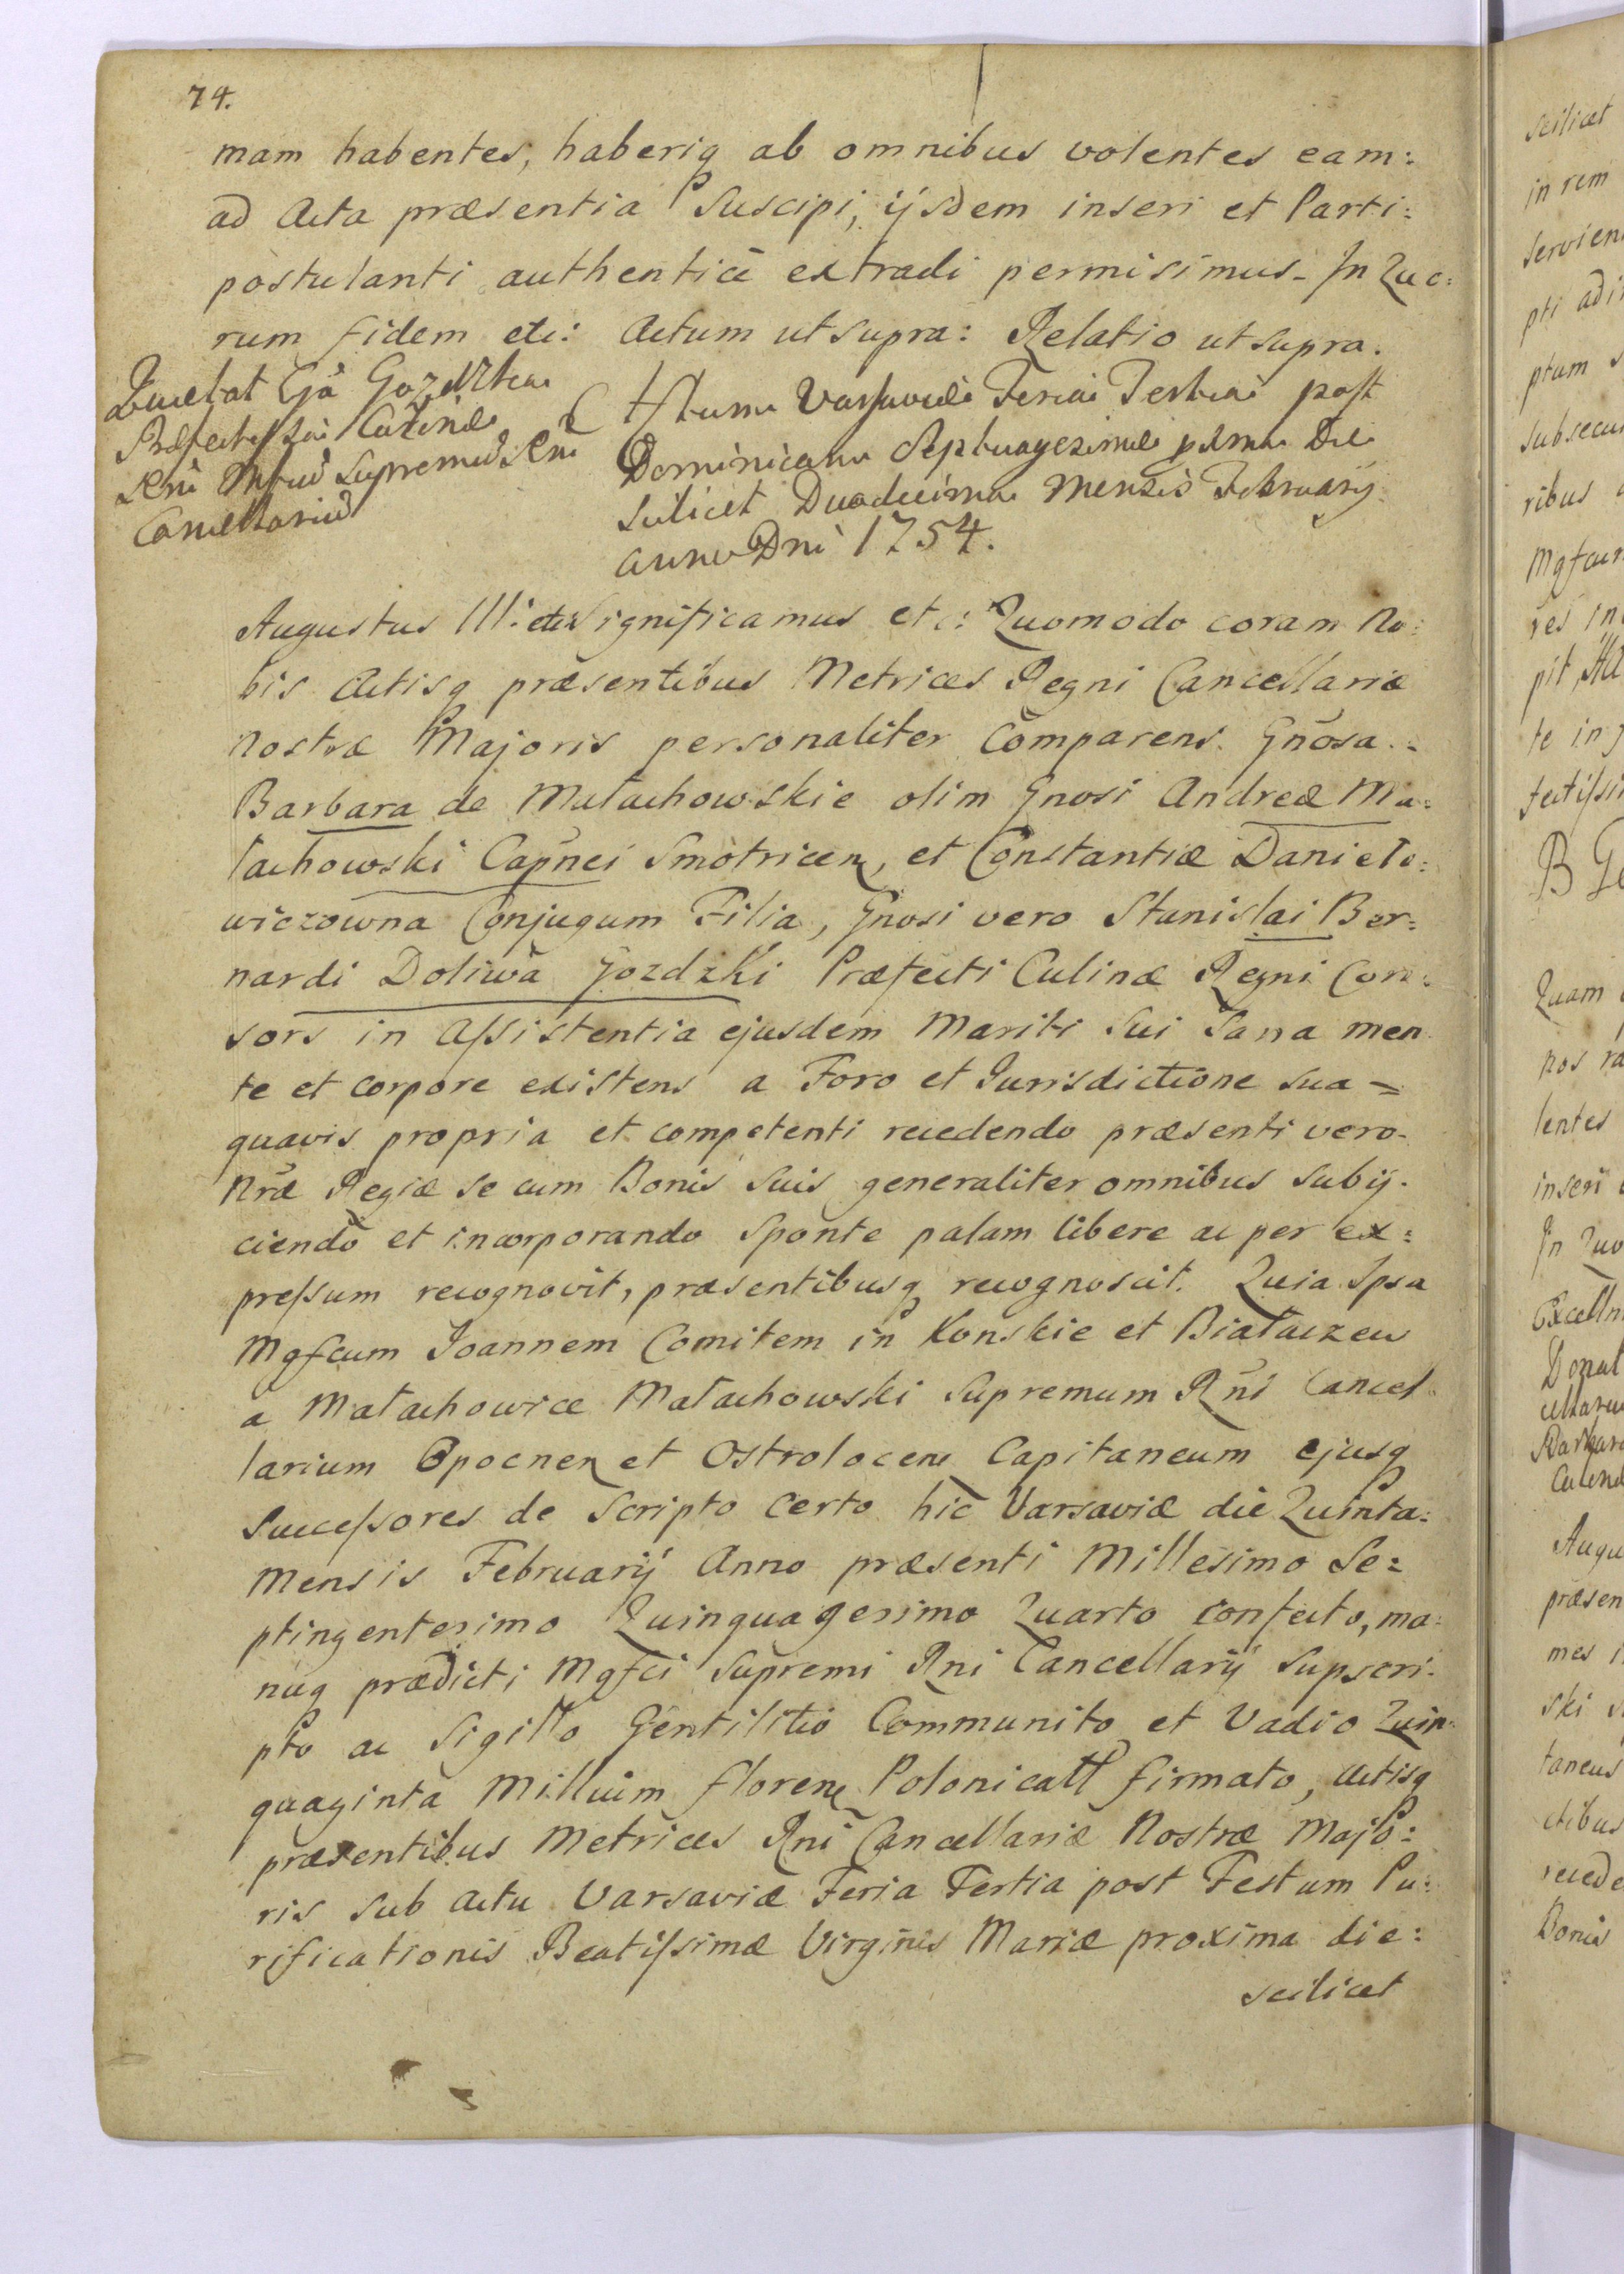 74.
mam habentes, haberiq ab omnibus volentes eam:
ad Acta præsentia Suscipi, ijsdem inseri et Parti:
postulanti authenticè extradi permisimus. In Quo:
rum fidem etc: Actum ut supra: Relatio ut supra.
Quietat Gsa Gozdzka
Præfectissa Culinæ
Regni Mfcus Supremus Rni
Cancellarius
Actum Varsaviæ Feria Tertia post
Dominicam Septuagesimæ pxma Die
scilicet Duodecima Mensis February
anno Dni 1754.
Augustus III: etc Significamus etc: Quomodo coram No:
bis Actisq præsentibus Metrices Regni Cancellariæ
Nostræ Majoris personaliter Comparens Gnosa
Barbara de Małachowskie olim Gnosi Andreæ Ma:
łachowski Capnei Smotricen, et Constantiæ Danieło:
wiczowna Conjugum Filia, Gnosi vero Stanislai Ber:
nardi Doliwa Gozdzki Præfecti Culinæ Regni Con:
sors in Assistentia ejusdem Mariti Sui Sana men
te et corpore existens a Foro et Jurisdictione sua =
quavis propria et competenti recedendo præsenti vero
Nræ Regiæ se cum Bonis suis generaliter omnibus subij:
ciendo et incorporando sponte palam libere ac per ex:
pressum recognovit, præsentibusq recognoscit. Quia Ipsa
Mgfcum Joannem Comitem in Konskie et Białaczew
a Małachowice Małachowski Supremum Rni Cancel
larium Opocnen et Ostrolocen Capitaneum ejusq
Successores de Scripto certo hic Varsaviæ die Quinta:
Mensis February Anno præsenti Millesimo Se=
ptingentesimo Quinquagesimo Quarto confecto, ma:
nuq prædicti Mgfci Supremi Rni Cancellarij supscri:
pto ac Sigillo Gentilitio Communito et Vadio Quin:
quaginta Millium floren Polonicall firmato, Actisq
præsentibus Metrices Rni Cancellariæ Nostræ Majo:
ris sub actu Varsaviæ Feria Tertia post Festum Pu:
rificationis Beatissimæ Virginis Mariæ proxima die:
scilicet
scilicet
in rem
servien
pti
ptum
subsecu
ribus
Mgfcu
pit
te in
fectissi
Quam
nos ra
lentes
inseri
In Quo
Excelln
Donat
Barbar
Culinæ
Augu
præsen
mes
ski
taneus
ctibus
recede
Bonis